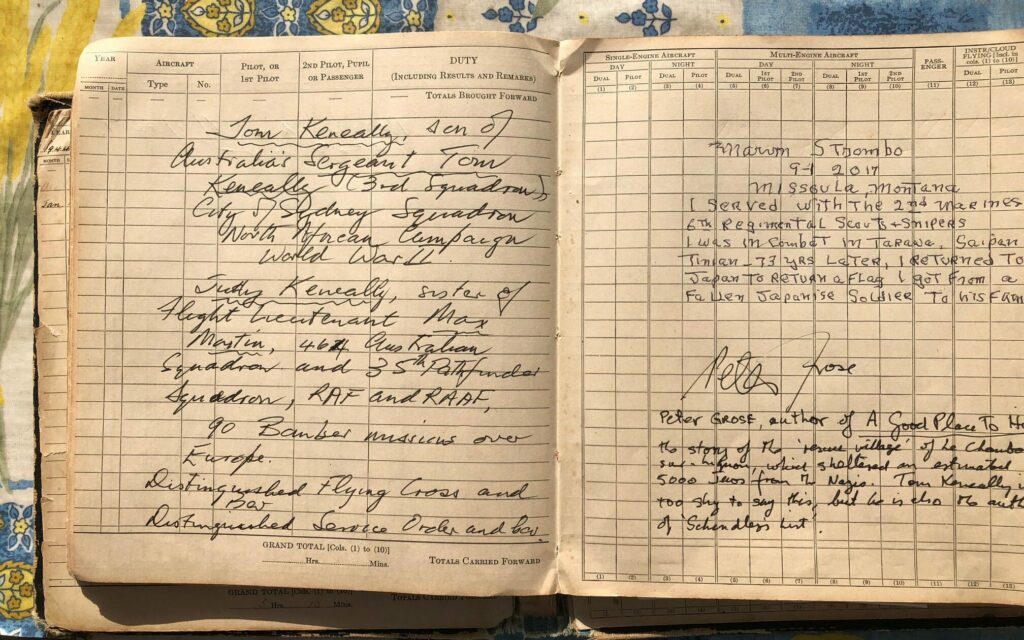 YEAR
AIRCRAFT
PILOT, OR
1ST PILOT
2ND PILOT, PUPIL
OR PASSENGER
DUTY
(INCLUDING RESULTS AND REMARKS)
MONTH DATE Type No.
TOTALS BROUGHT FORWARD
Tom Keneally, son of
Australia's Sergeant Tom
Keneally (3rd Squadron)
City of Sydney Squadron
North African Campaign
World War II.
Judy Keneally, sister of
Flight Lieutenant Max
Martin, 464 Australian
Squadron and 35th Pathfinder
Squadron, RAF and RAAF,
90 Bomber missions over
Europe.
Distinguished Flying Cross and
Bar
Distinguished Service Order and bar.
GRAND TOTAL [Cols. (1) to (10)]
Hrs. Mins.
TOTALS CARRIED FORWARD
SINGLE-ENGINE AIRCRAFT
MULTI-ENGINE AIRCRAFT
PASS-
ENGER
INSTR/CLOUD
FLYING [Incl. in
cols. (1) to (10)]
DAY NIGHT DAY NIGHT
DUAL PILOT DUAL PILOT DUAL 1ST PILOT 2ND PILOT DUAL 1ST PILOT 2ND PILOT DUAL PILOT
(1) (2) (3) (4) (5) (6) (7) (8) (9) (10) (11) (12) (13)
Marvin Strombo
2017
Missoula, Montana
I served with The 2nd Marines
6th Regimental Scouts + Snipers
I was in combat in Tarawa, Saipan
Tinian - 73 yrs later, I returned to
Japan to return a flag I got from a
Fallen Japanise Soldier to his Fam
Peter Grose
Peter GROSE, author of A Good Place To H
the story of the 'rescue village' of Le Chambo
sur-Lignon, which sheltered an estimated
5000 Jews from the Nazis. Tom Keneally is
too shy to say this, but he is also the auth
of 'Schindler's List'.
(1) (2) (3) (4) (5) (6) (7) (8) (9) (10) (11) (12) (13)